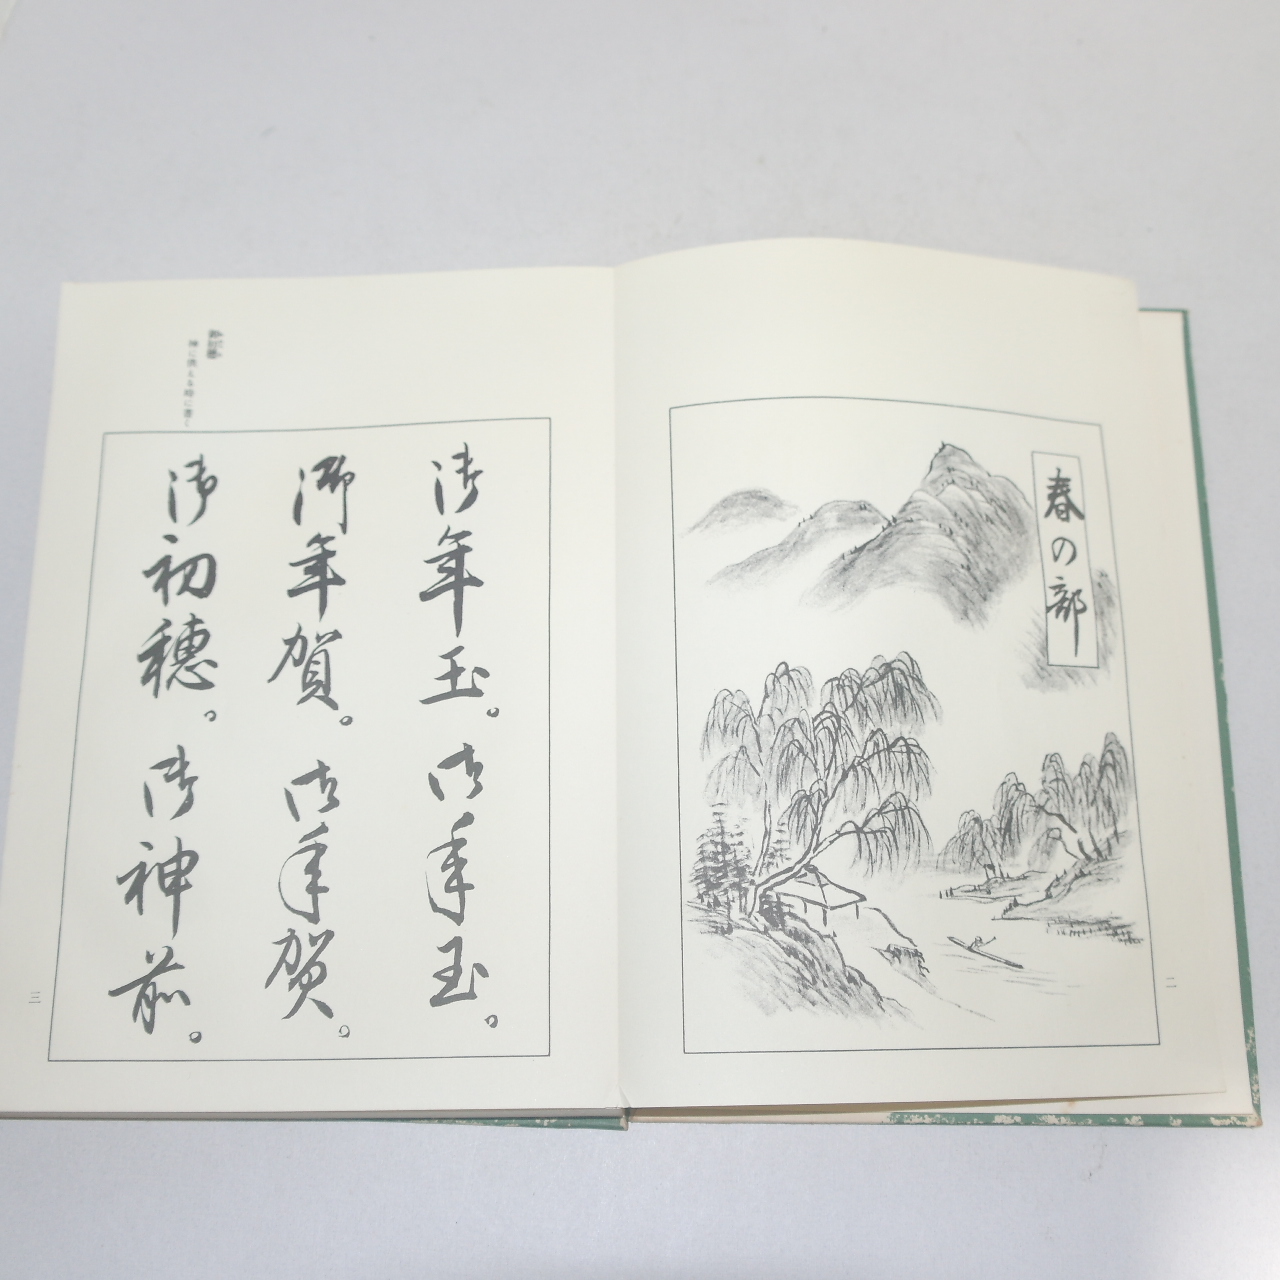 春の部
二
御年玉。御年玉。
御年賀。御年賀。
御初穂。御神前。
御初穂
神に供える時に書く
三